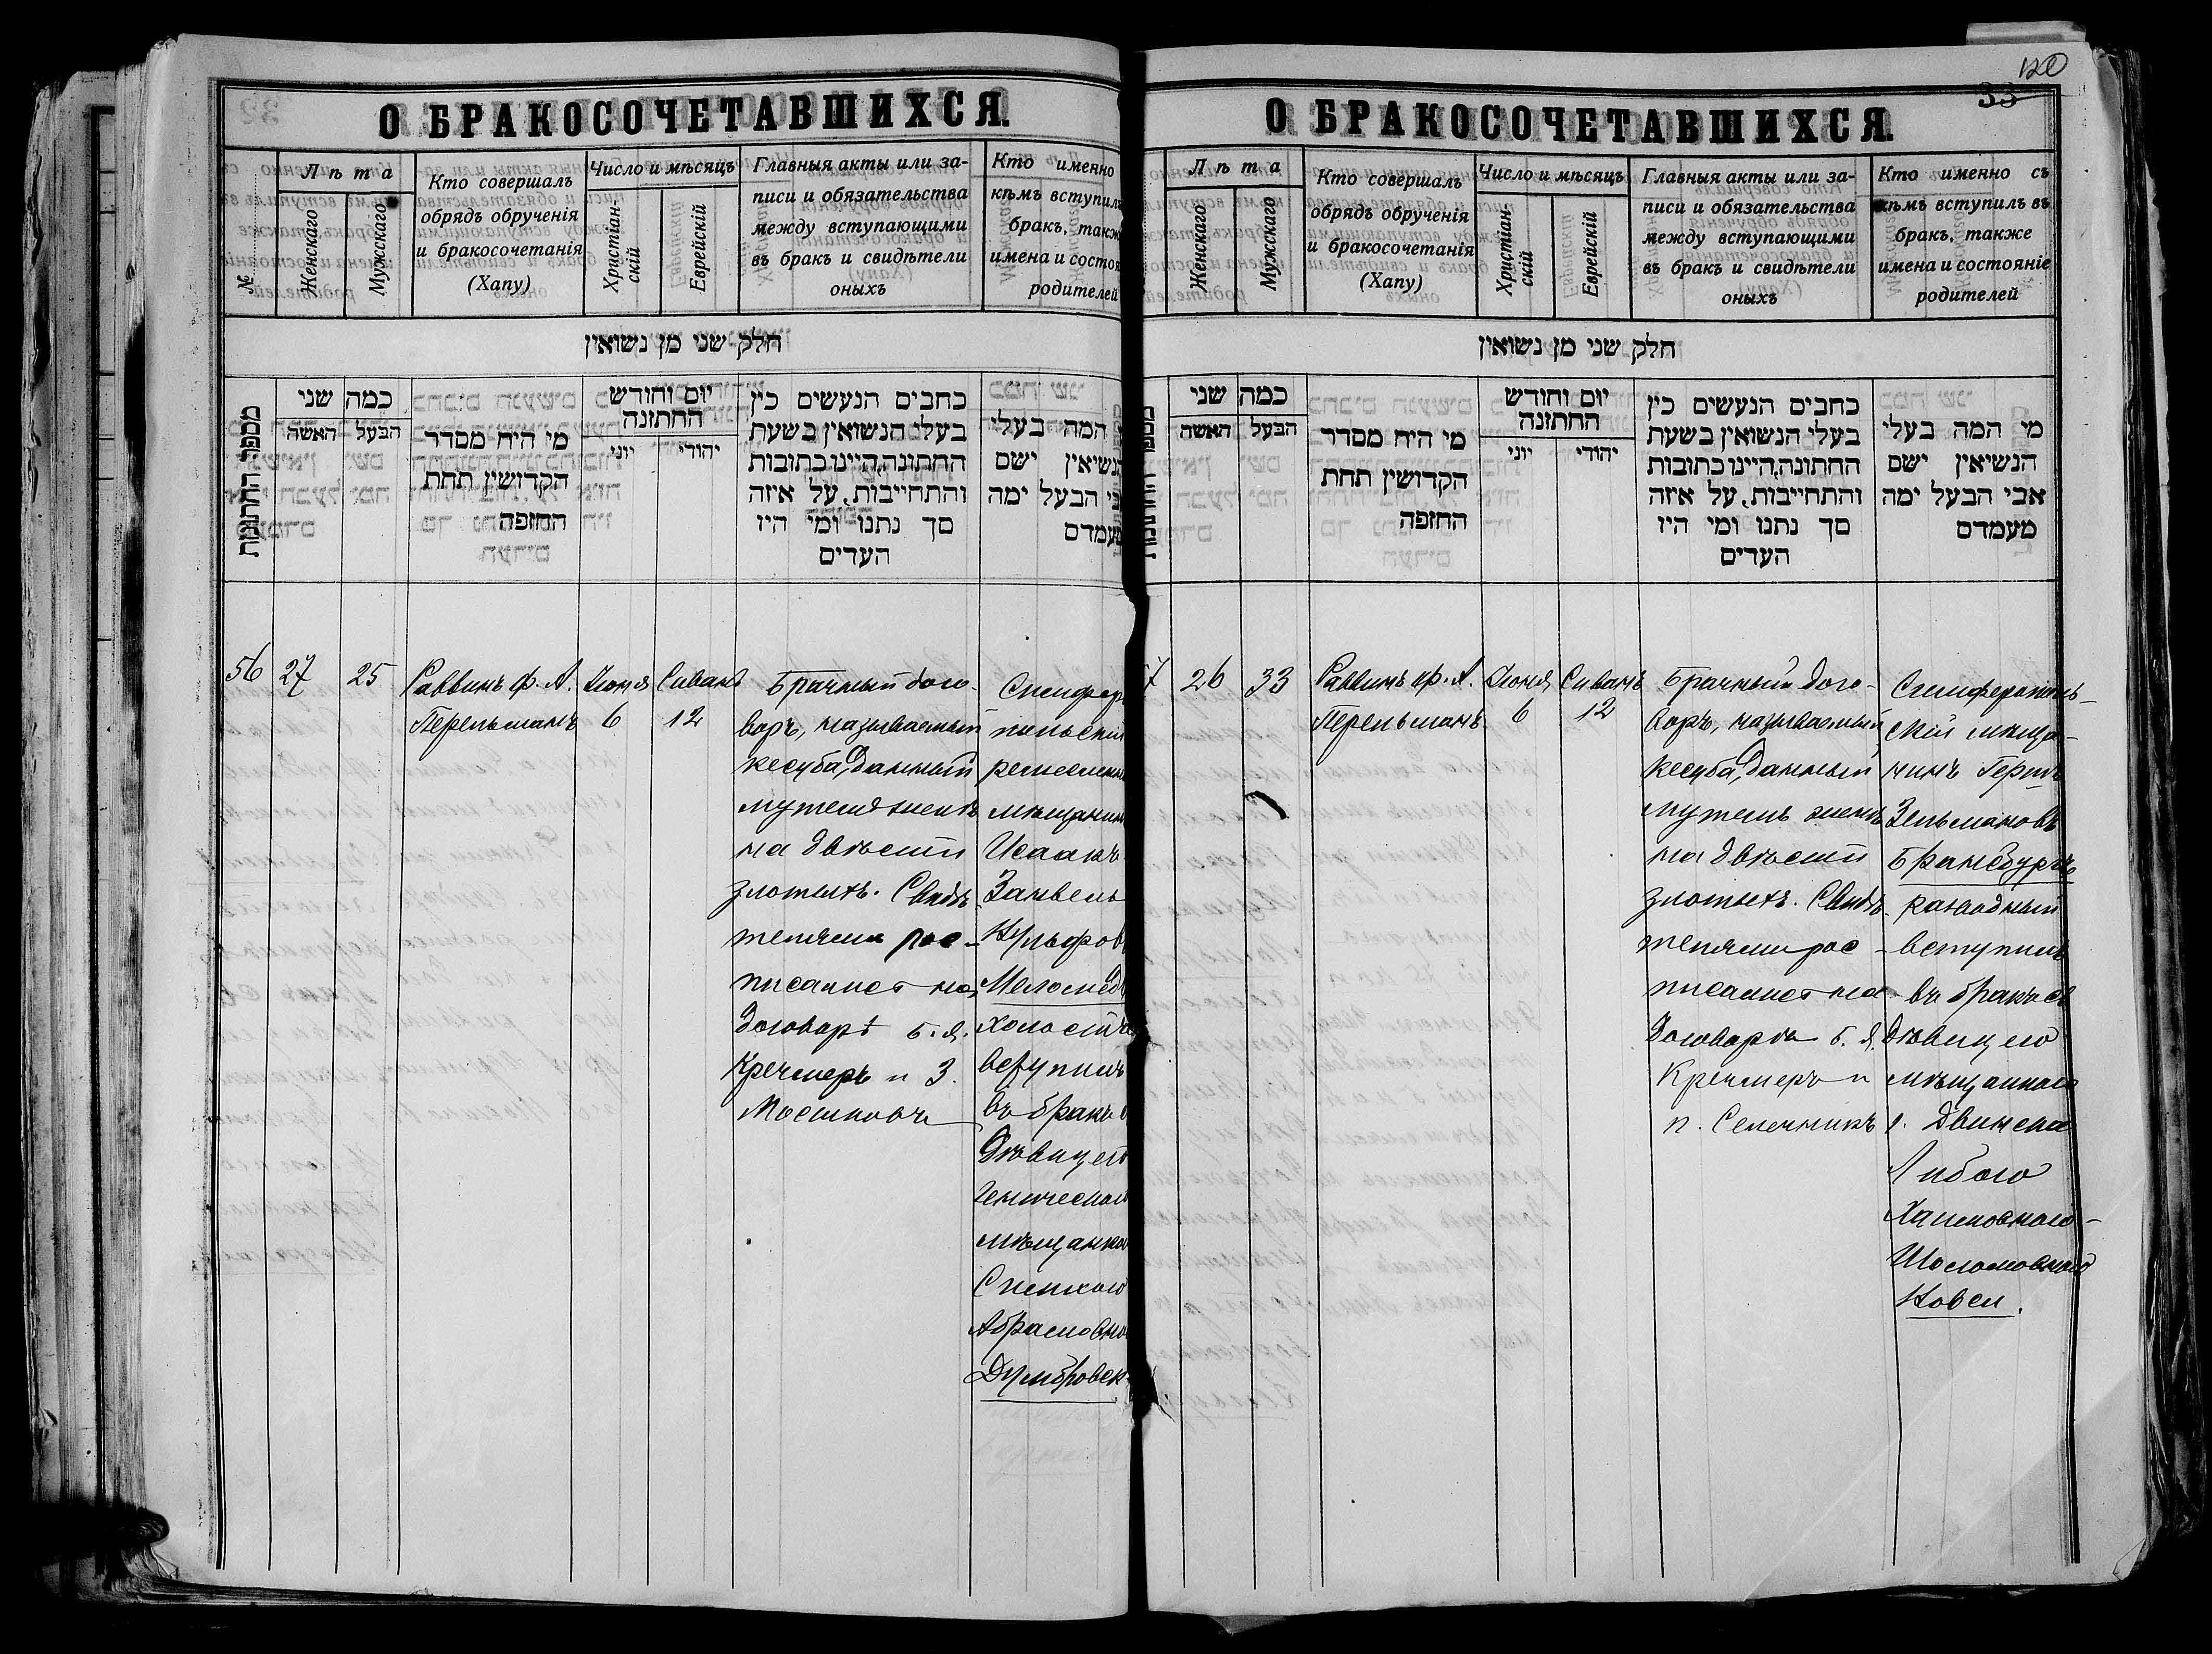 120
33
О БРАКОСОЧЕТАВШИХСЯ.
№
Лѣта
Женскаго
Мужскаго
Кто совершалъ
обрядъ обрученія
и бракосочетанія
(Хапу)
Число и мѣсяцъ
Христіан-
скій
Еврейскій
Главныя акты или за-
писи и обязательства
между вступающими
въ бракъ и свидѣтели
оныхъ
Кто именно
кѣмъ вступилъ
бракъ, также
имена и состоя
родителей
חלק שני מן נשואין
מספר החתונות
כמה שני
האשה
הבעל
מי היח מסדר
הקדושין תחת
החזפה
יום וחודש
החתונה
יוני
יהודי
כחבים הנעשים כין
בעלי הנשואין בשעת
החתונה, היינו כתובות
והתחייבות, על איזה
סך נתנו ומי היז
העדים
המה בעלי
הנשיאין ישם
אבי הבעל ימה
מעמדם
56
27
25
Раввинъ Ф. А.
Перельманъ
Іюня
6
Сиванъ
12
Брачный дого-
воръ, называемый
кесуба, данный
мужемъ женѣ
на двѣсти
злотыхъ. Свидѣ-
телями рос-
писались на
договорѣ Б. Я.
Кречмеръ и З.
Мошковъ
Симферо
польскій
ремесленн
мѣщанинъ
Исаакъ
Занвель
Вульфов
Меламед
холостъ
вступилъ
въ бракъ с
дѣвицею
Геническою
мѣщанкою
Симхою
Абрамовно
Думбровск
О БРАКОСОЧЕТАВШИХСЯ.
Лѣта
Женскаго
Мужскаго
Кто совершалъ
обрядъ обрученія
и бракосочетанія
(Хапу)
Число и мѣсяцъ
Христіан-
скій
Еврейскій
Главныя акты или за-
писи и обязательства
между вступающими
въ бракъ и свидѣтели
оныхъ
Кто именно съ
кѣмъ вступилъ въ
бракъ, также
имена и состояніе
родителей
חלק שני מן נשואין
כמה שני
האשה
הבעל
מי היח מסדר
הקדושין תחת
החזפה
יום וחודש
החתונה
יוני
יהודי
כחבים הנעשים כין
בעלי הנשואין בשעת
החתונה, היינו כתובות
והתחייבות, על איזה
סך נתנו ומי היז
העדים
מי המה בעלי
הנשיאין ישם
אבי הבעל ימה
מעמדם
7
26
33
Раввинъ Ф. А.
Перельманъ
Іюня
6
Сиванъ
12
Брачный дого-
воръ, называемый
кесуба, данный
мужемъ женѣ
на двѣсти
злотыхъ. Свидѣ-
телями рос-
писались на
договорѣ Б. Я.
Кречмеръ и
П. Сепечникъ
Симферополь-
скій мѣща-
нинъ Гершъ
Зельмановъ
Брансбургъ
разводный
вступилъ
въ бракъ съ
дѣвицею
мѣщанкою
г. Двинска
Либою
Хаимовною-
Шоломовною
Новси.